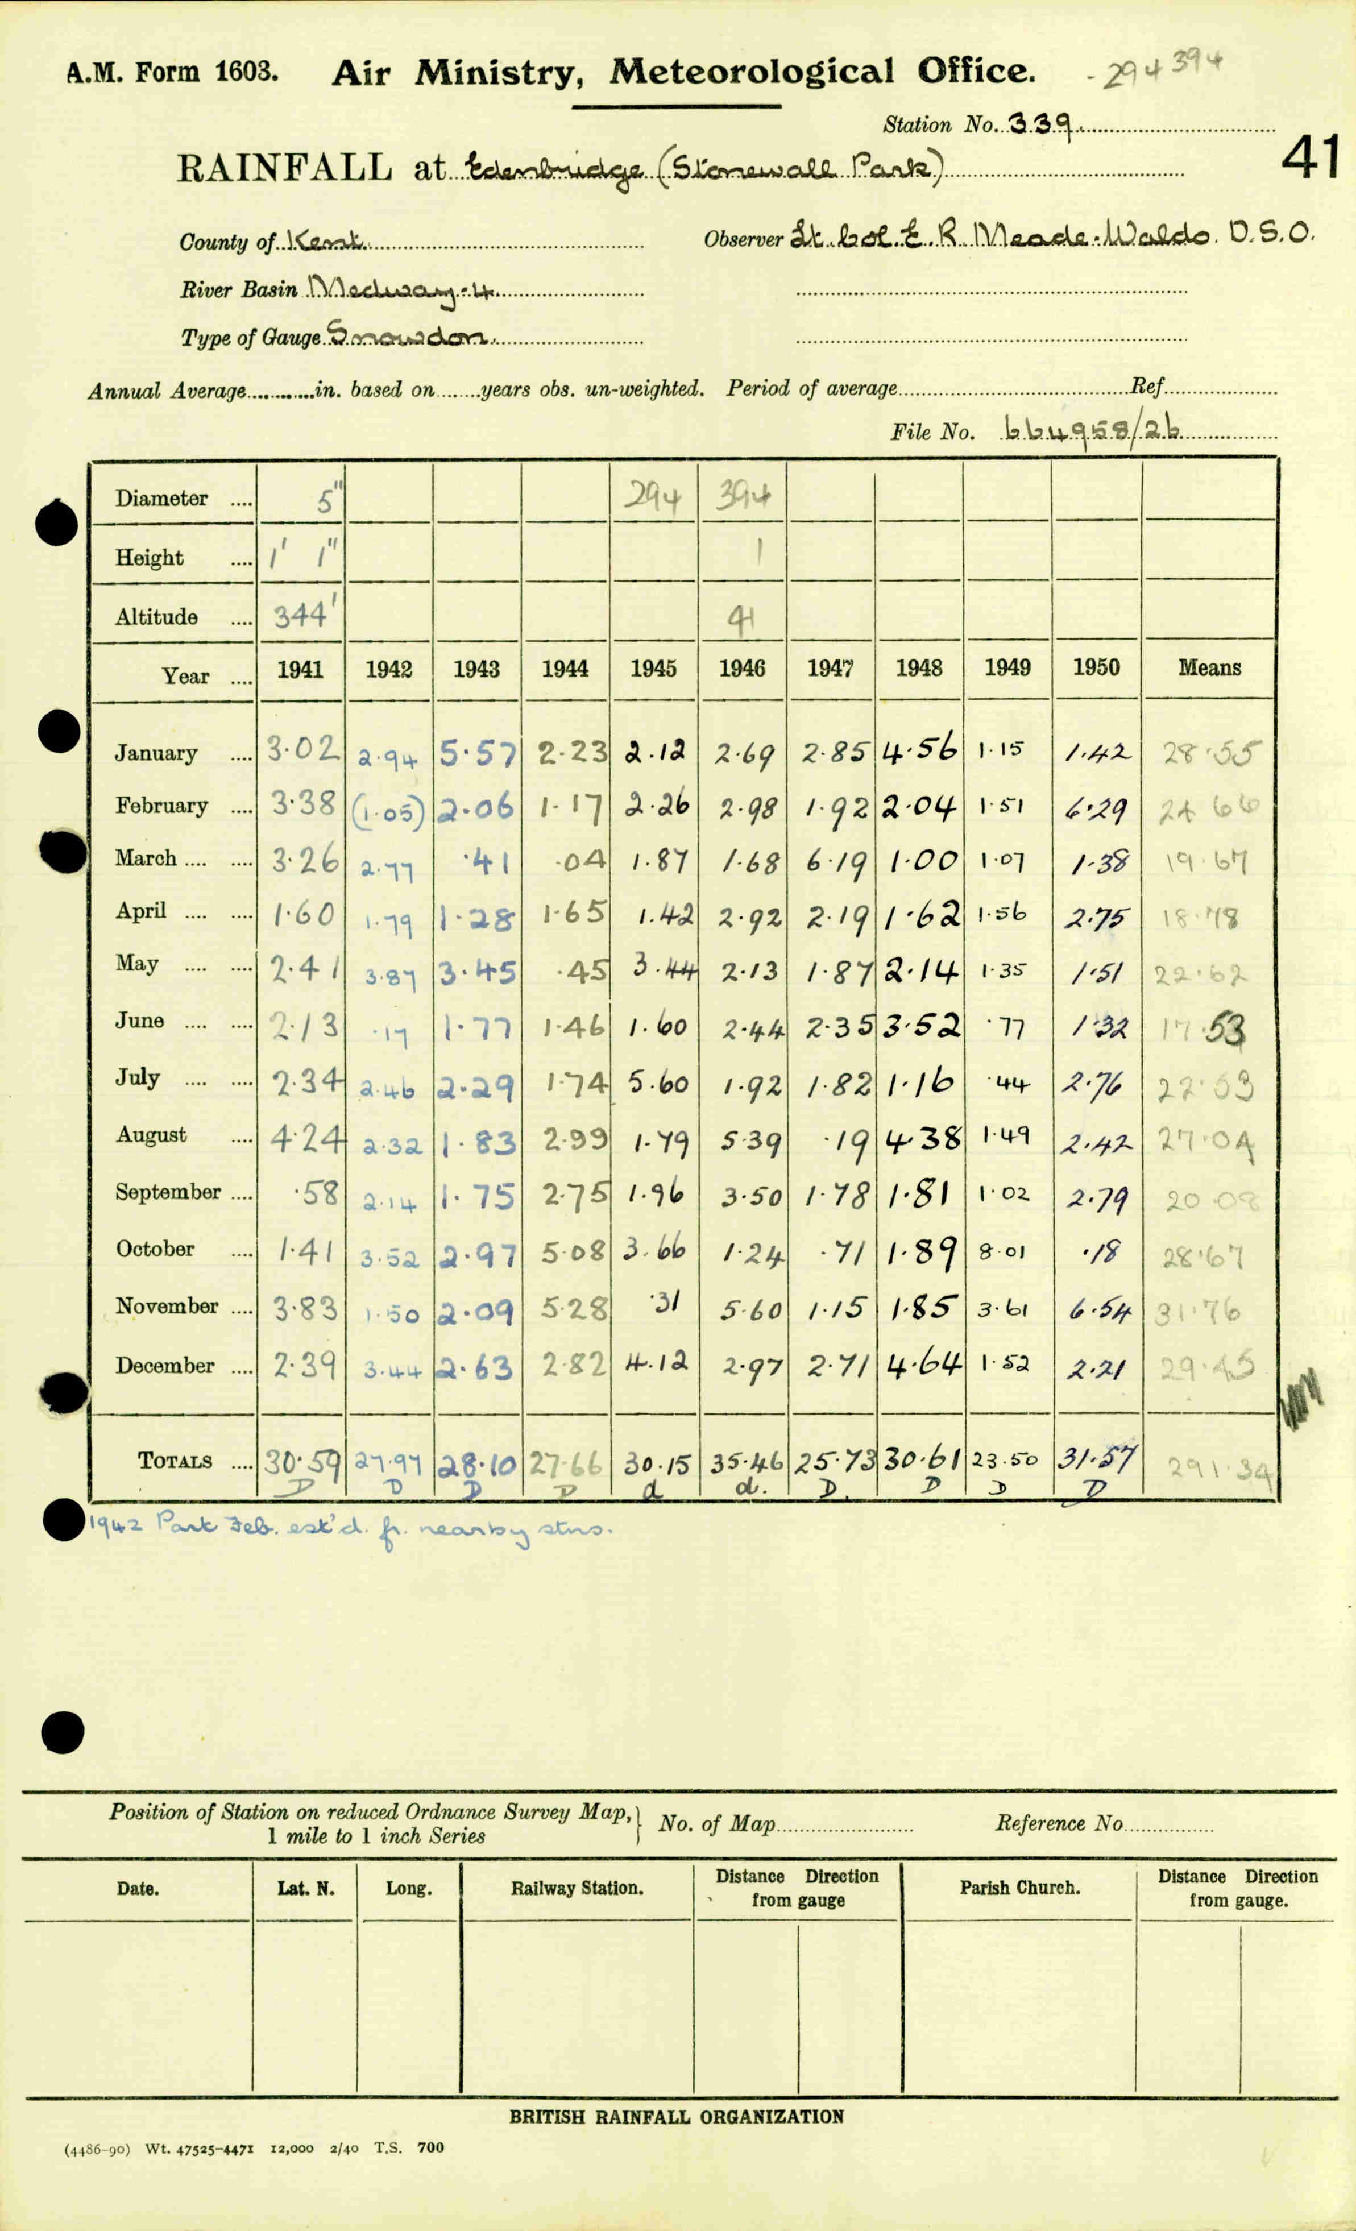 A.M. Form 1603. Air Ministry, Meteorological Office. -294 394
Station No. 339.
41
RAINFALL at Edenbridge (Stonewall Park)
County of Kent. Observer Lt. Col. E. R. Meade-Waldo. D.S.O.
River Basin Medway-4
Type of Gauge Snowdon.
Annual Average............in. based on.......years obs. un-weighted. Period of average.......... Ref..........
File No. 664958/26
Diameter .... 5" 294 394
Height .... 1' 1" 1
Altitude .... 344' 41
Year .... 1941 1942 1943 1944 1945 1946 1947 1948 1949 1950 Means
January .... 3·02 2·94 5·57 2·23 2·12 2·69 2·85 4·56 1·15 1·42 28·55
February .... 3·38 (1·05) 2·06 1·17 2·26 2·98 1·92 2·04 1·51 6·29 24 66
March .... .... 3·26 2·77 ·41 ·04 1·87 1·68 6·19 1·00 1·07 1·38 19·67
April .... .... 1·60 1·79 1·28 1·65 1·42 2·92 2·19 1·62 1·56 2·75 18·78
May .... .... 2·41 3·87 3·45 ·45 3·44 2·13 1·87 2·14 1·35 1·51 22·62
June .... .... 2·13 ·17 1·77 1·46 1·60 2·44 2·35 3·52 ·77 1·32 17·53
July .... .... 2·34 2·46 2·29 1·74 5·60 1·92 1·82 1·16 ·44 2·76 22·53
August .... 4·24 2·32 1·83 2·99 1·79 5·39 ·19 4·38 1·49 2·42 27·04
September .... ·58 2·14 1·75 2·75 1·96 3·50 1·78 1·81 1·02 2·79 20·08
October .... 1·41 3·52 2·97 5·08 3·66 1·24 ·71 1·89 8·01 ·18 28·67
November .... 3·83 1·50 2·09 5·28 ·31 5·60 1·15 1·85 3·61 6·54 31·76
December .... 2·39 3·44 2·63 2·82 4·12 2·97 2·71 4·64 1·52 2·21 29·45
TOTALS .... 30·59 27·97 28·10 27·66 30·15 35·46 25·73 30·61 23·50 31·57 291·34
D D D D d d. D. D D D
1942 Park Feb. est'd. fr. nearby stns.
Position of Station on reduced Ordnance Survey Map, } No. of Map.......... Reference No..........
1 mile to 1 inch Series
Date. Lat. N. Long. Railway Station. Distance Direction from gauge Parish Church. Distance Direction from gauge.
BRITISH RAINFALL ORGANIZATION
(4486-90) Wt. 47525-4471 12,000 2/40 T.S. 700